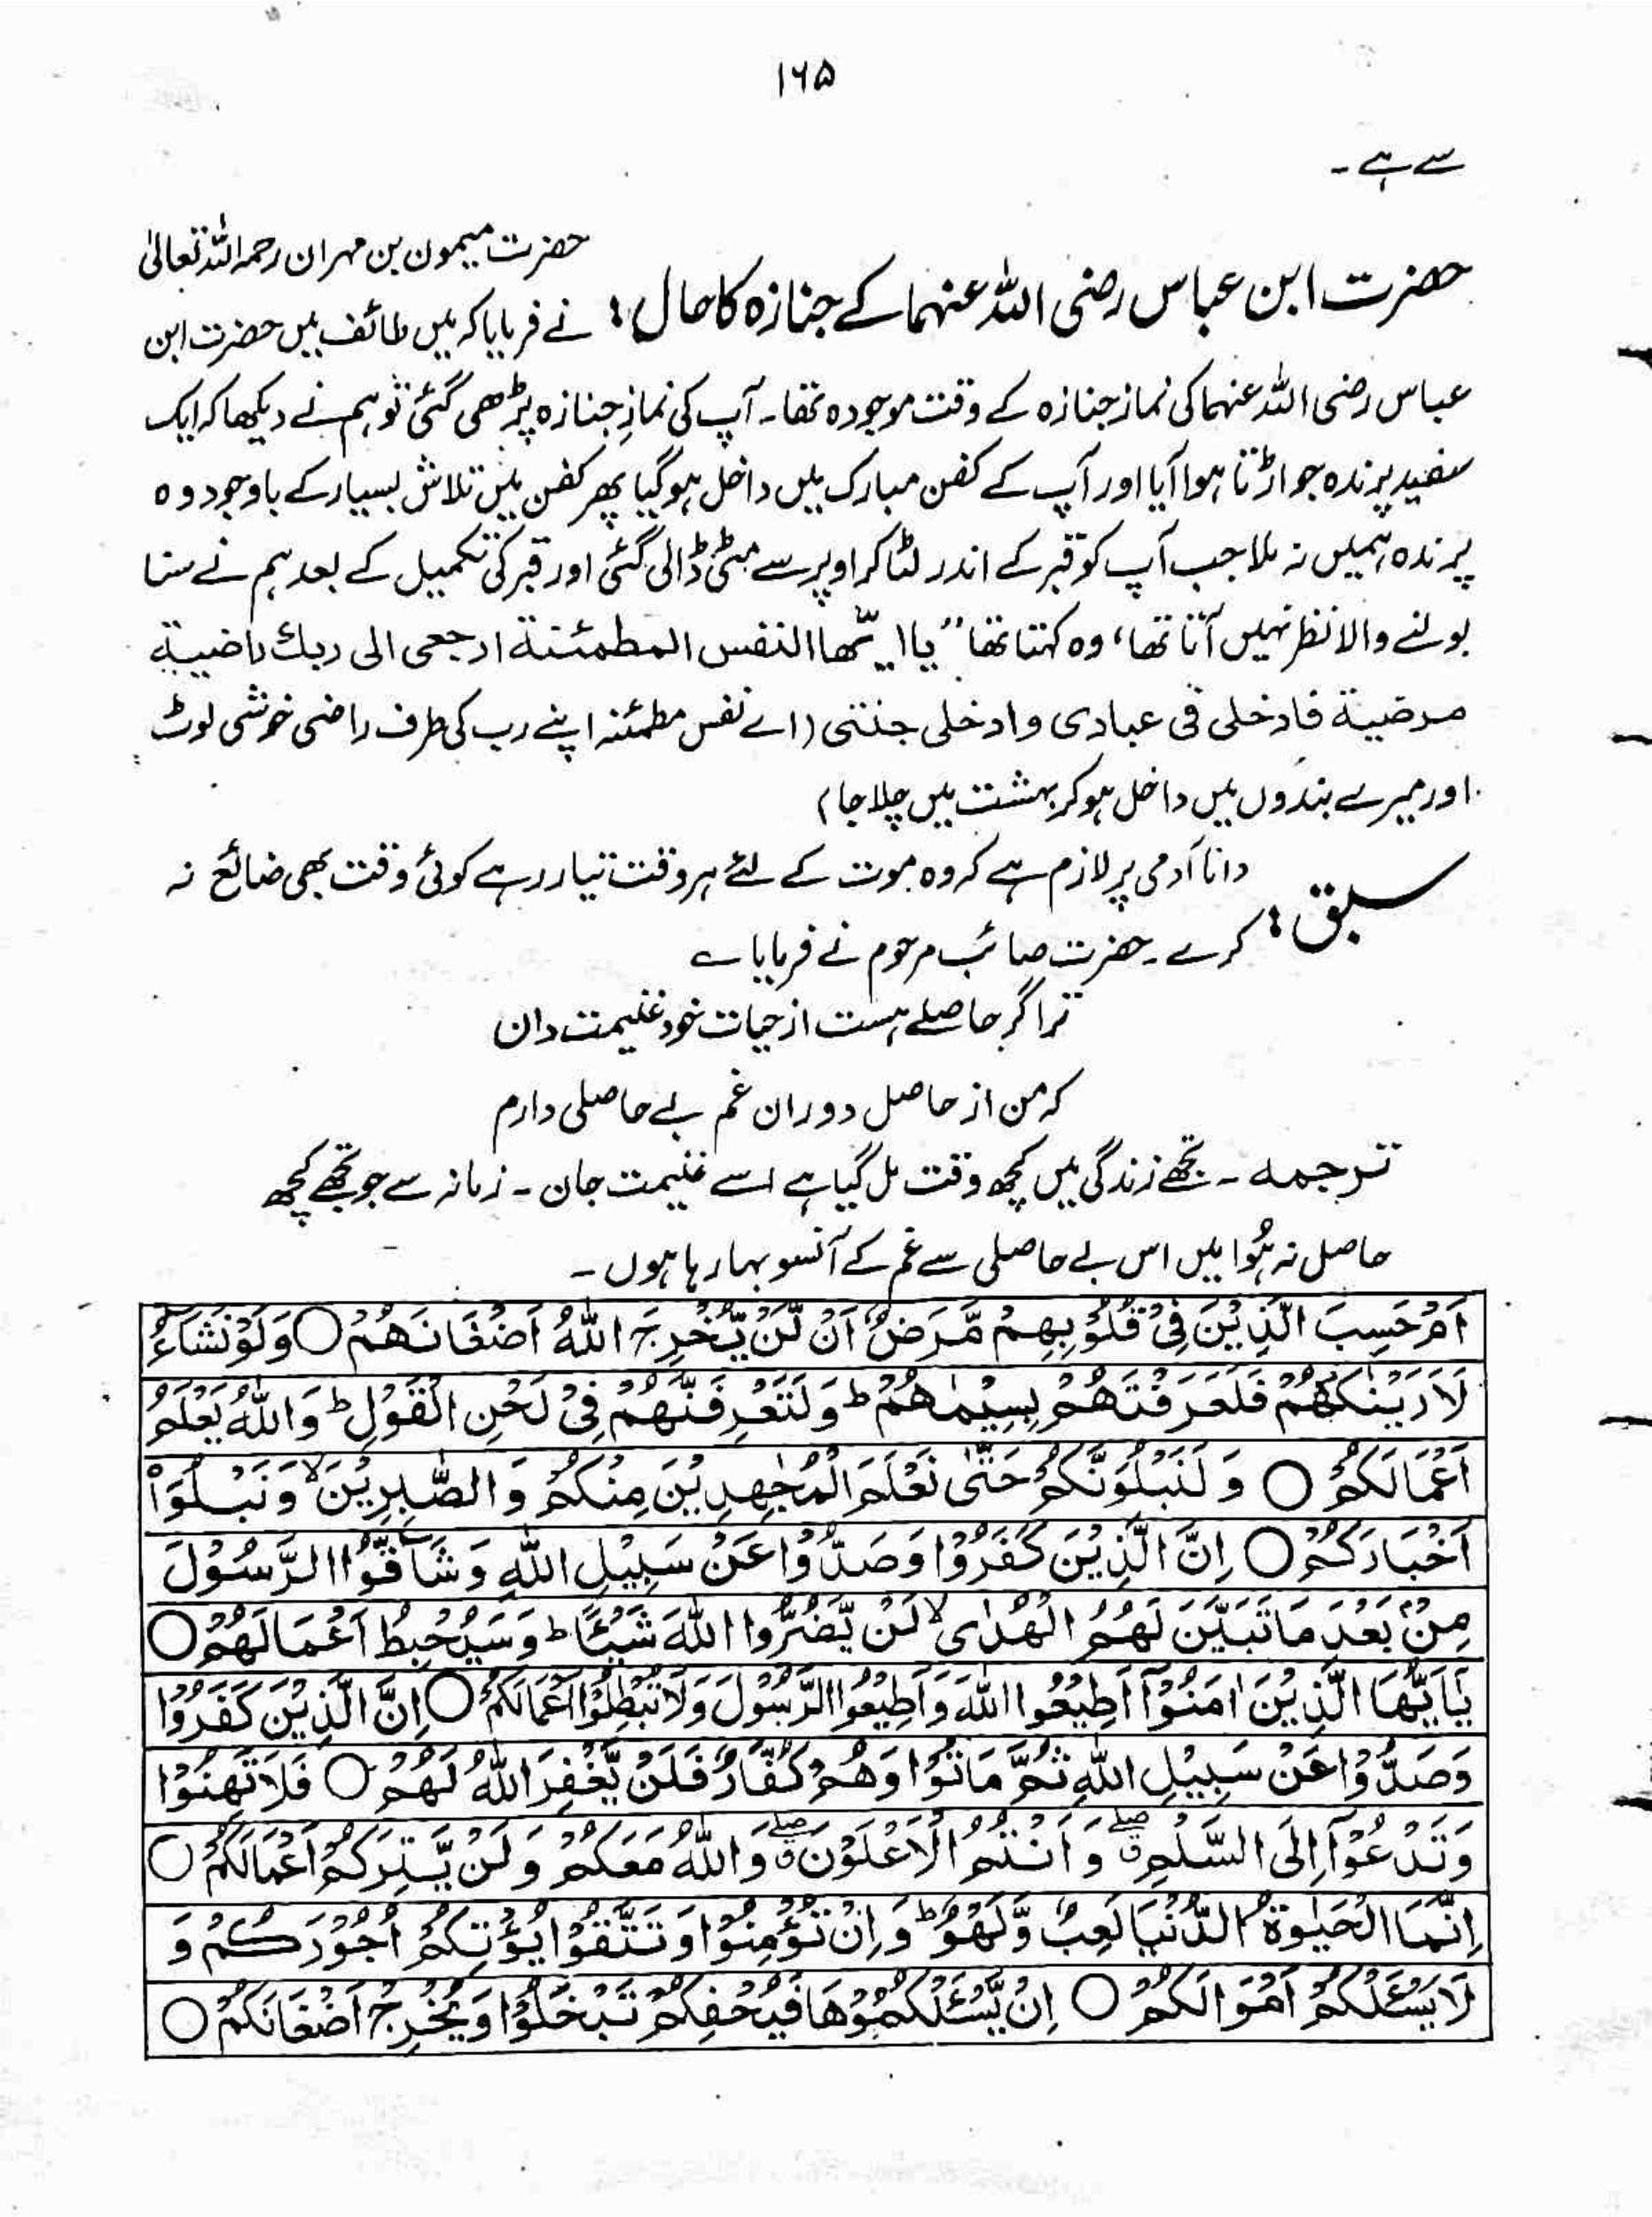 ۱۶۵
سے ہے۔
حضرت ابن عباس رضی اللہ عنہما کے جنازہ کا حال؛
حضرت میمون بن مہران رحمہ اللہ تعالیٰ
نے فرمایا کہ میں طائف میں حضرت ابن
عباس رضی اللہ عنہما کی نماز جنازہ کے وقت موجود تھا۔ آپ کی نمازِ جنازہ پڑھی گئی تو ہم نے دیکھا کہ ایک
سفید پرندہ جو اڑتا ہوا آیا اور آپ کے کفن مبارک میں داخل ہو گیا پھر کفن میں تلاش بسیار کے باوجود وہ
پرندہ ہمیں نہ ملا جب آپ کو قبر کے اندر لٹا کر اوپر سے مٹی ڈالی گئی اور قبر کی تکمیل کے بعد ہم نے سنا
بولنے والا نظر نہیں آتا تھا، وہ کہتا تھا "یا ایتھا النفس المطمئنة ارجعی الی ربك راضیة
مرضیة فادخلی فی عبادی وادخلی جنتی (اے نفس مطمئنہ اپنے رب کی طرف راضی خوشی لوٹ
اور میرے بندوں میں داخل ہو کر بہشت میں چلا جا)
سبق؛ دانا آدمی پر لازم ہے کہ وہ موت کے لئے ہر وقت تیار رہے کوئی وقت بھی ضائع نہ
کرے۔ حضرت صائب مرحوم نے فرمایا ے
ترا اگر حاصلے ہست از حیات خود غنیمت دان
کہ من از حاصل دوران غم بے حاصلی دارم
ترجمہ۔ تجھے زندگی میں کچھ وقت مل گیا ہے اسے غنیمت جان۔ زمانہ سے جو تجھے کچھ
حاصل نہ ہُوا میں اس بے حاصلی سے غم کے آنسو بہا رہا ہوں۔
اَمْ حَسِبَ الَّذِیْنَ فِیْ قُلُوْبِهِمْ مَّرَضٌ اَنْ لَّنْ یُّخْرِجَ اللّٰهُ اَضْغَانَهُمْ ○ وَلَوْ نَشَآءُ
لَاَرَیْنٰكَهُمْ فَلَعَرَفْتَهُمْ بِسِیْمٰهُمْ ؕ وَلَتَعْرِفَنَّهُمْ فِیْ لَحْنِ الْقَوْلِ ؕ وَاللّٰهُ یَعْلَمُ
اَعْمَالَكُمْ ○ وَلَنَبْلُوَنَّكُمْ حَتّٰی نَعْلَمَ الْمُجٰهِدِیْنَ مِنْكُمْ وَالصّٰبِرِیْنَ ۙ وَنَبْلُوَا۟
اَخْبَارَكُمْ ○ اِنَّ الَّذِیْنَ كَفَرُوْا وَصَدُّوْا عَنْ سَبِیْلِ اللّٰهِ وَشَآقُّوا الرَّسُوْلَ
مِنْۢ بَعْدِ مَا تَبَیَّنَ لَهُمُ الْهُدٰی ۙ لَنْ یَّضُرُّوا اللّٰهَ شَیْـًٔا ؕ وَسَیُحْبِطُ اَعْمَالَهُمْ ○
یٰۤاَیُّهَا الَّذِیْنَ اٰمَنُوْۤا اَطِیْعُوا اللّٰهَ وَاَطِیْعُوا الرَّسُوْلَ وَلَا تُبْطِلُوْۤا اَعْمَالَكُمْ ○ اِنَّ الَّذِیْنَ كَفَرُوْا
وَصَدُّوْا عَنْ سَبِیْلِ اللّٰهِ ثُمَّ مَاتُوْا وَهُمْ كُفَّارٌ فَلَنْ یَّغْفِرَ اللّٰهُ لَهُمْ ○ فَلَا تَهِنُوْا
وَتَدْعُوْۤا اِلَی السَّلْمِ ۖۗ وَاَنْتُمُ الْاَعْلَوْنَ ۖۗ وَاللّٰهُ مَعَكُمْ وَلَنْ یَّتِرَكُمْ اَعْمَالَكُمْ ○
اِنَّمَا الْحَیٰوةُ الدُّنْیَا لَعِبٌ وَّلَهْوٌ ؕ وَاِنْ تُؤْمِنُوْا وَتَتَّقُوْا یُؤْتِكُمْ اُجُوْرَكُمْ وَ
لَا یَسْـَٔلْكُمْ اَمْوَالَكُمْ ○ اِنْ یَّسْـَٔلْكُمُوْهَا فَیُحْفِكُمْ تَبْخَلُوْا وَیُخْرِجْ اَضْغَانَكُمْ ○